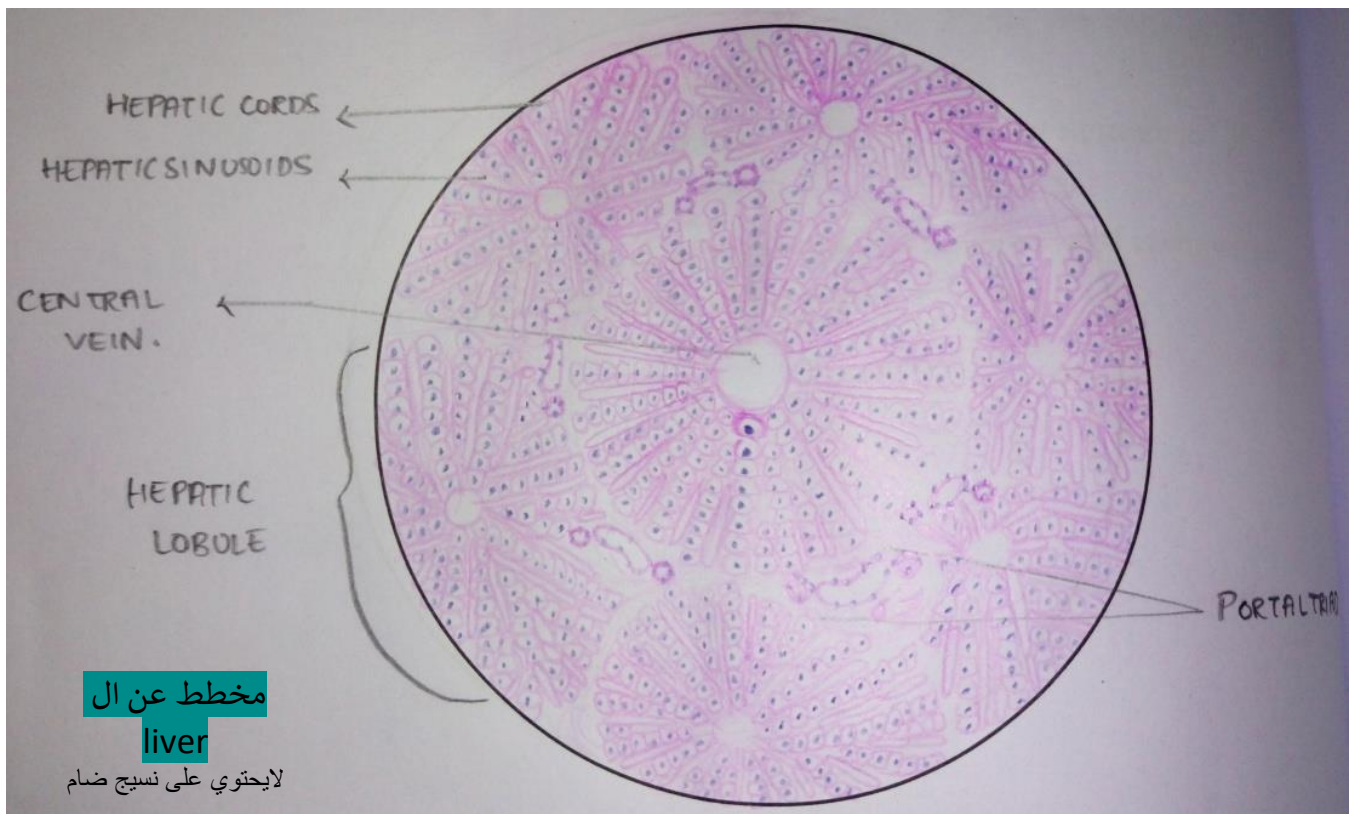 HEPATIC CORDS
HEPATIC SINUSOIDS
CENTRAL
VEIN.
HEPATIC
LOBULE
PORTALTRIAD
مخطط عن ال
liver
لايحتوي على نسيج ضام